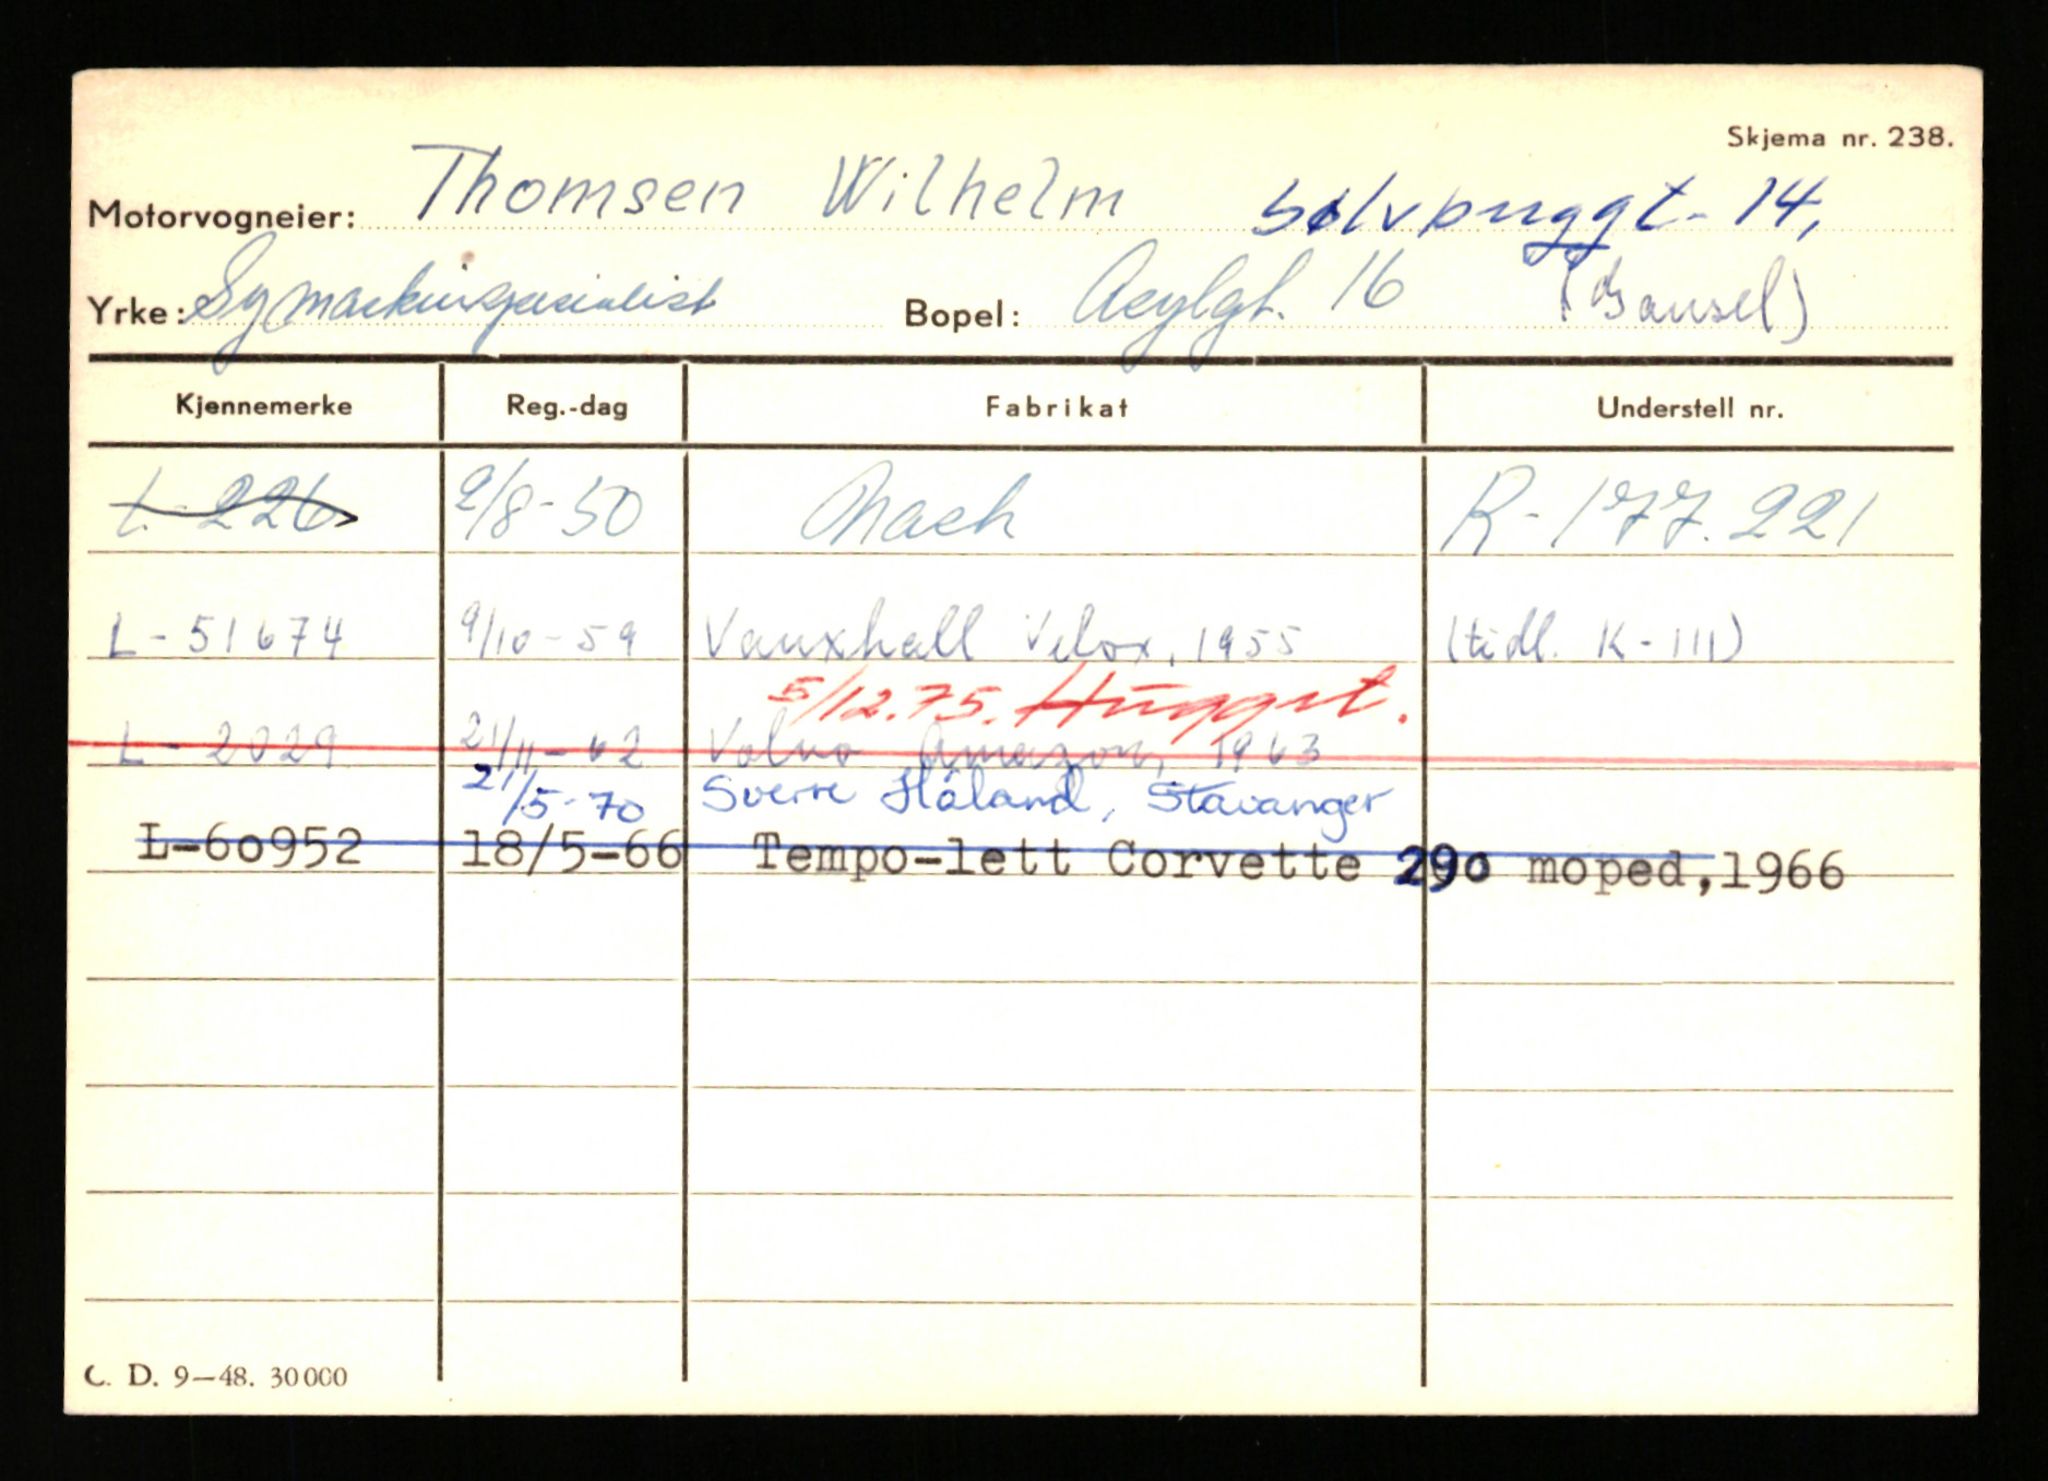 Skjema nr. 238.
Motorvogneier: Thomsen Wilhelm Sølvbuggt. 14,
Yrke: Symaskinspesialist Bopel: Asylgt. 16 (Bausel)
Kjennemerke Reg.-dag Fabrikat Understell nr.
L-226 2/8-50 Nash R-177.221
L-51674 9/10-59 Vauxhall Velox, 1955 (tidl. K-111)
5/12.75. Hugget.
L-2029 21/11-62 Volvo Amazon, 1963
21/5-70 Sverre Håland, Stavanger
L-60952 18/5-66 Tempo-lett Corvette 290 moped,1966
C. D. 9—48. 30000